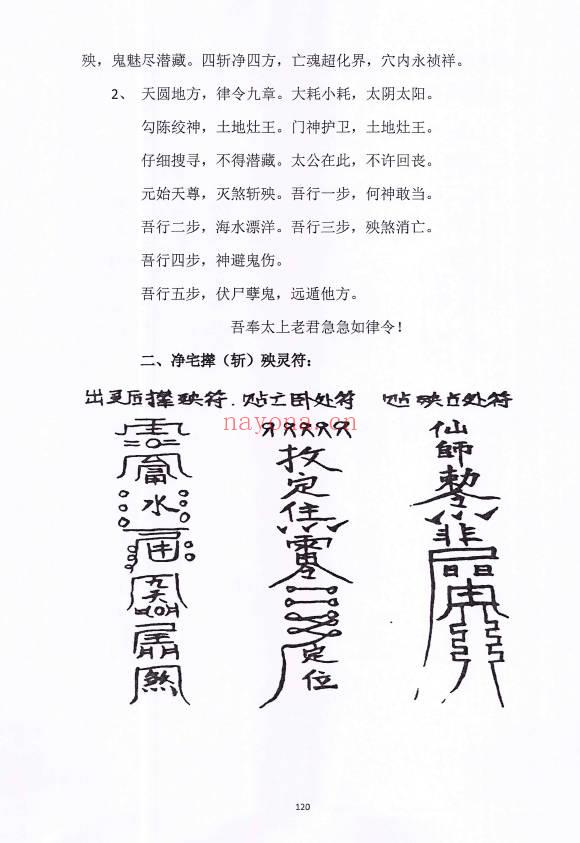 殃，鬼魅尽潜藏。四斩净四方，亡魂超化界，穴内永祯祥。
2、 天圆地方，律令九章。大耗小耗，太阴太阳。
勾陈绞神，土地灶王。门神护卫，土地灶王。
仔细搜寻，不得潜藏。太公在此，不许回丧。
元始天尊，灭煞斩殃。吾行一步，何神敢当。
吾行二步，海水漂洋。吾行三步，殃煞消亡。
吾行四步，神避鬼伤。
吾行五步，伏尸孽鬼，远遁他方。
吾奉太上老君急急如律令！
二、净宅撵（斩）殃灵符：
出灵后撵殃符.
贴亡卧处符
贴殃占处符
nayona.cn
水
九天
煞
定
住
定
位
仙
師
120